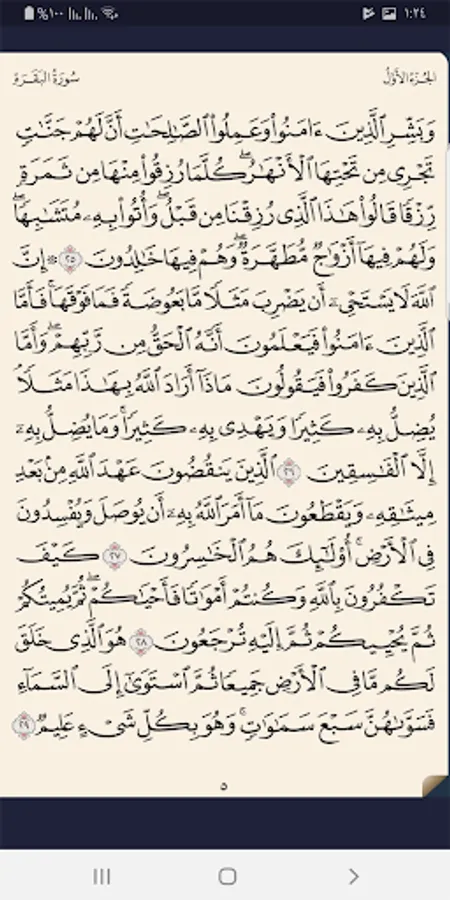 %١٠٠ ١:٢٤
الجزء الأول سورة البقرة
وَبَشِّرِ الَّذِينَ ءَامَنُوا۟ وَعَمِلُوا۟ الصَّٰلِحَٰتِ أَنَّ لَهُمْ جَنَّٰتٍ
تَجْرِى مِن تَحْتِهَا الْأَنْهَٰرُ ۖ كُلَّمَا رُزِقُوا۟ مِنْهَا مِن ثَمَرَةٍ
رِّزْقًا قَالُوا۟ هَٰذَا الَّذِى رُزِقْنَا مِن قَبْلُ ۖ وَأُتُوا۟ بِهِۦ مُتَشَٰبِهًا ۖ
وَلَهُمْ فِيهَآ أَزْوَٰجٌ مُّطَهَّرَةٌ ۖ وَهُمْ فِيهَا خَٰلِدُونَ ٢٥ ۞ إِنَّ
اللَّهَ لَا يَسْتَحْىِۦٓ أَن يَضْرِبَ مَثَلًا مَّا بَعُوضَةً فَمَا فَوْقَهَا ۚ فَأَمَّا
الَّذِينَ ءَامَنُوا۟ فَيَعْلَمُونَ أَنَّهُ الْحَقُّ مِن رَّبِّهِمْ ۖ وَأَمَّا
الَّذِينَ كَفَرُوا۟ فَيَقُولُونَ مَاذَآ أَرَادَ اللَّهُ بِهَٰذَا مَثَلًا ۘ
يُضِلُّ بِهِۦ كَثِيرًا وَيَهْدِى بِهِۦ كَثِيرًا ۚ وَمَا يُضِلُّ بِهِۦٓ
إِلَّا الْفَٰسِقِينَ ٢٦ الَّذِينَ يَنقُضُونَ عَهْدَ اللَّهِ مِنۢ بَعْدِ
مِيثَٰقِهِۦ وَيَقْطَعُونَ مَآ أَمَرَ اللَّهُ بِهِۦٓ أَن يُوصَلَ وَيُفْسِدُونَ
فِى الْأَرْضِ ۚ أُو۟لَٰٓئِكَ هُمُ الْخَٰسِرُونَ ٢٧ كَيْفَ
تَكْفُرُونَ بِاللَّهِ وَكُنتُمْ أَمْوَٰتًا فَأَحْيَٰكُمْ ۖ ثُمَّ يُمِيتُكُمْ
ثُمَّ يُحْيِيكُمْ ثُمَّ إِلَيْهِ تُرْجَعُونَ ٢٨ هُوَ الَّذِى خَلَقَ
لَكُم مَّا فِى الْأَرْضِ جَمِيعًا ثُمَّ اسْتَوَىٰٓ إِلَى السَّمَآءِ
فَسَوَّىٰهُنَّ سَبْعَ سَمَٰوَٰتٍ ۚ وَهُوَ بِكُلِّ شَىْءٍ عَلِيمٌ ٢٩
٥